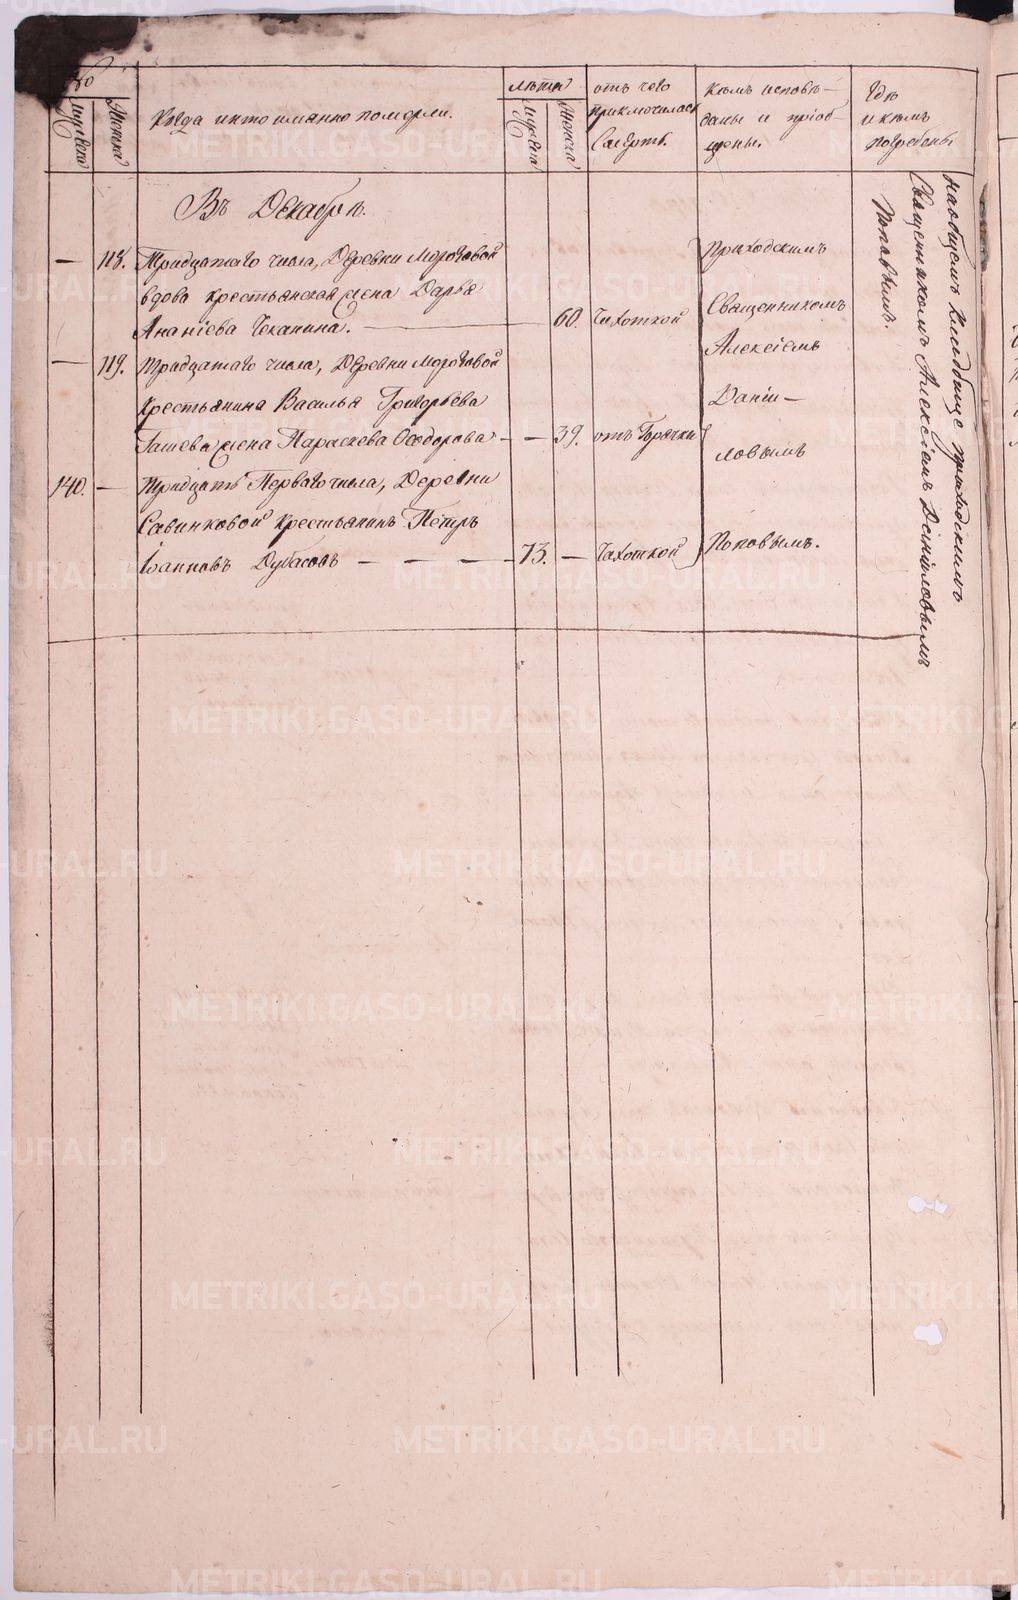 №
Мужеска
Женска
Когда и кто имянно померли.
лѣта
Мужеска
Женска
отъ чего
приключилась
Смерть.
Кѣмъ исповѣ-
даны и приоб-
щены.
Гдѣ
и кѣмъ
погребены
Въ Декабрѣ.
— 118. Тридцатаго числа, Деревни Морозовой
вдова крестьянская жена Дарья
Ананіева Чеканина. — 60. Чахоткой
— 119. Тридцатаго числа, Деревни Морозовой
Крестьянина Василья Григорьева
Гашева жена Параскева Ѳеодорова — — 39. отъ Горячки
140. — Тридцать Перваго числа, Деревни
Савинковой крестьянинъ Петръ
Іоанновъ Дубасовъ — — — — 73. — Чахоткой
Приходскимъ
Священникомъ
Алексіемъ
Даніи-
ловымъ
Поповымъ.
на общемъ кладбище приходскимъ
Священникомъ Алексіемъ Даніиловымъ
Поповымъ.
METRIKI.GASO-URAL.RU